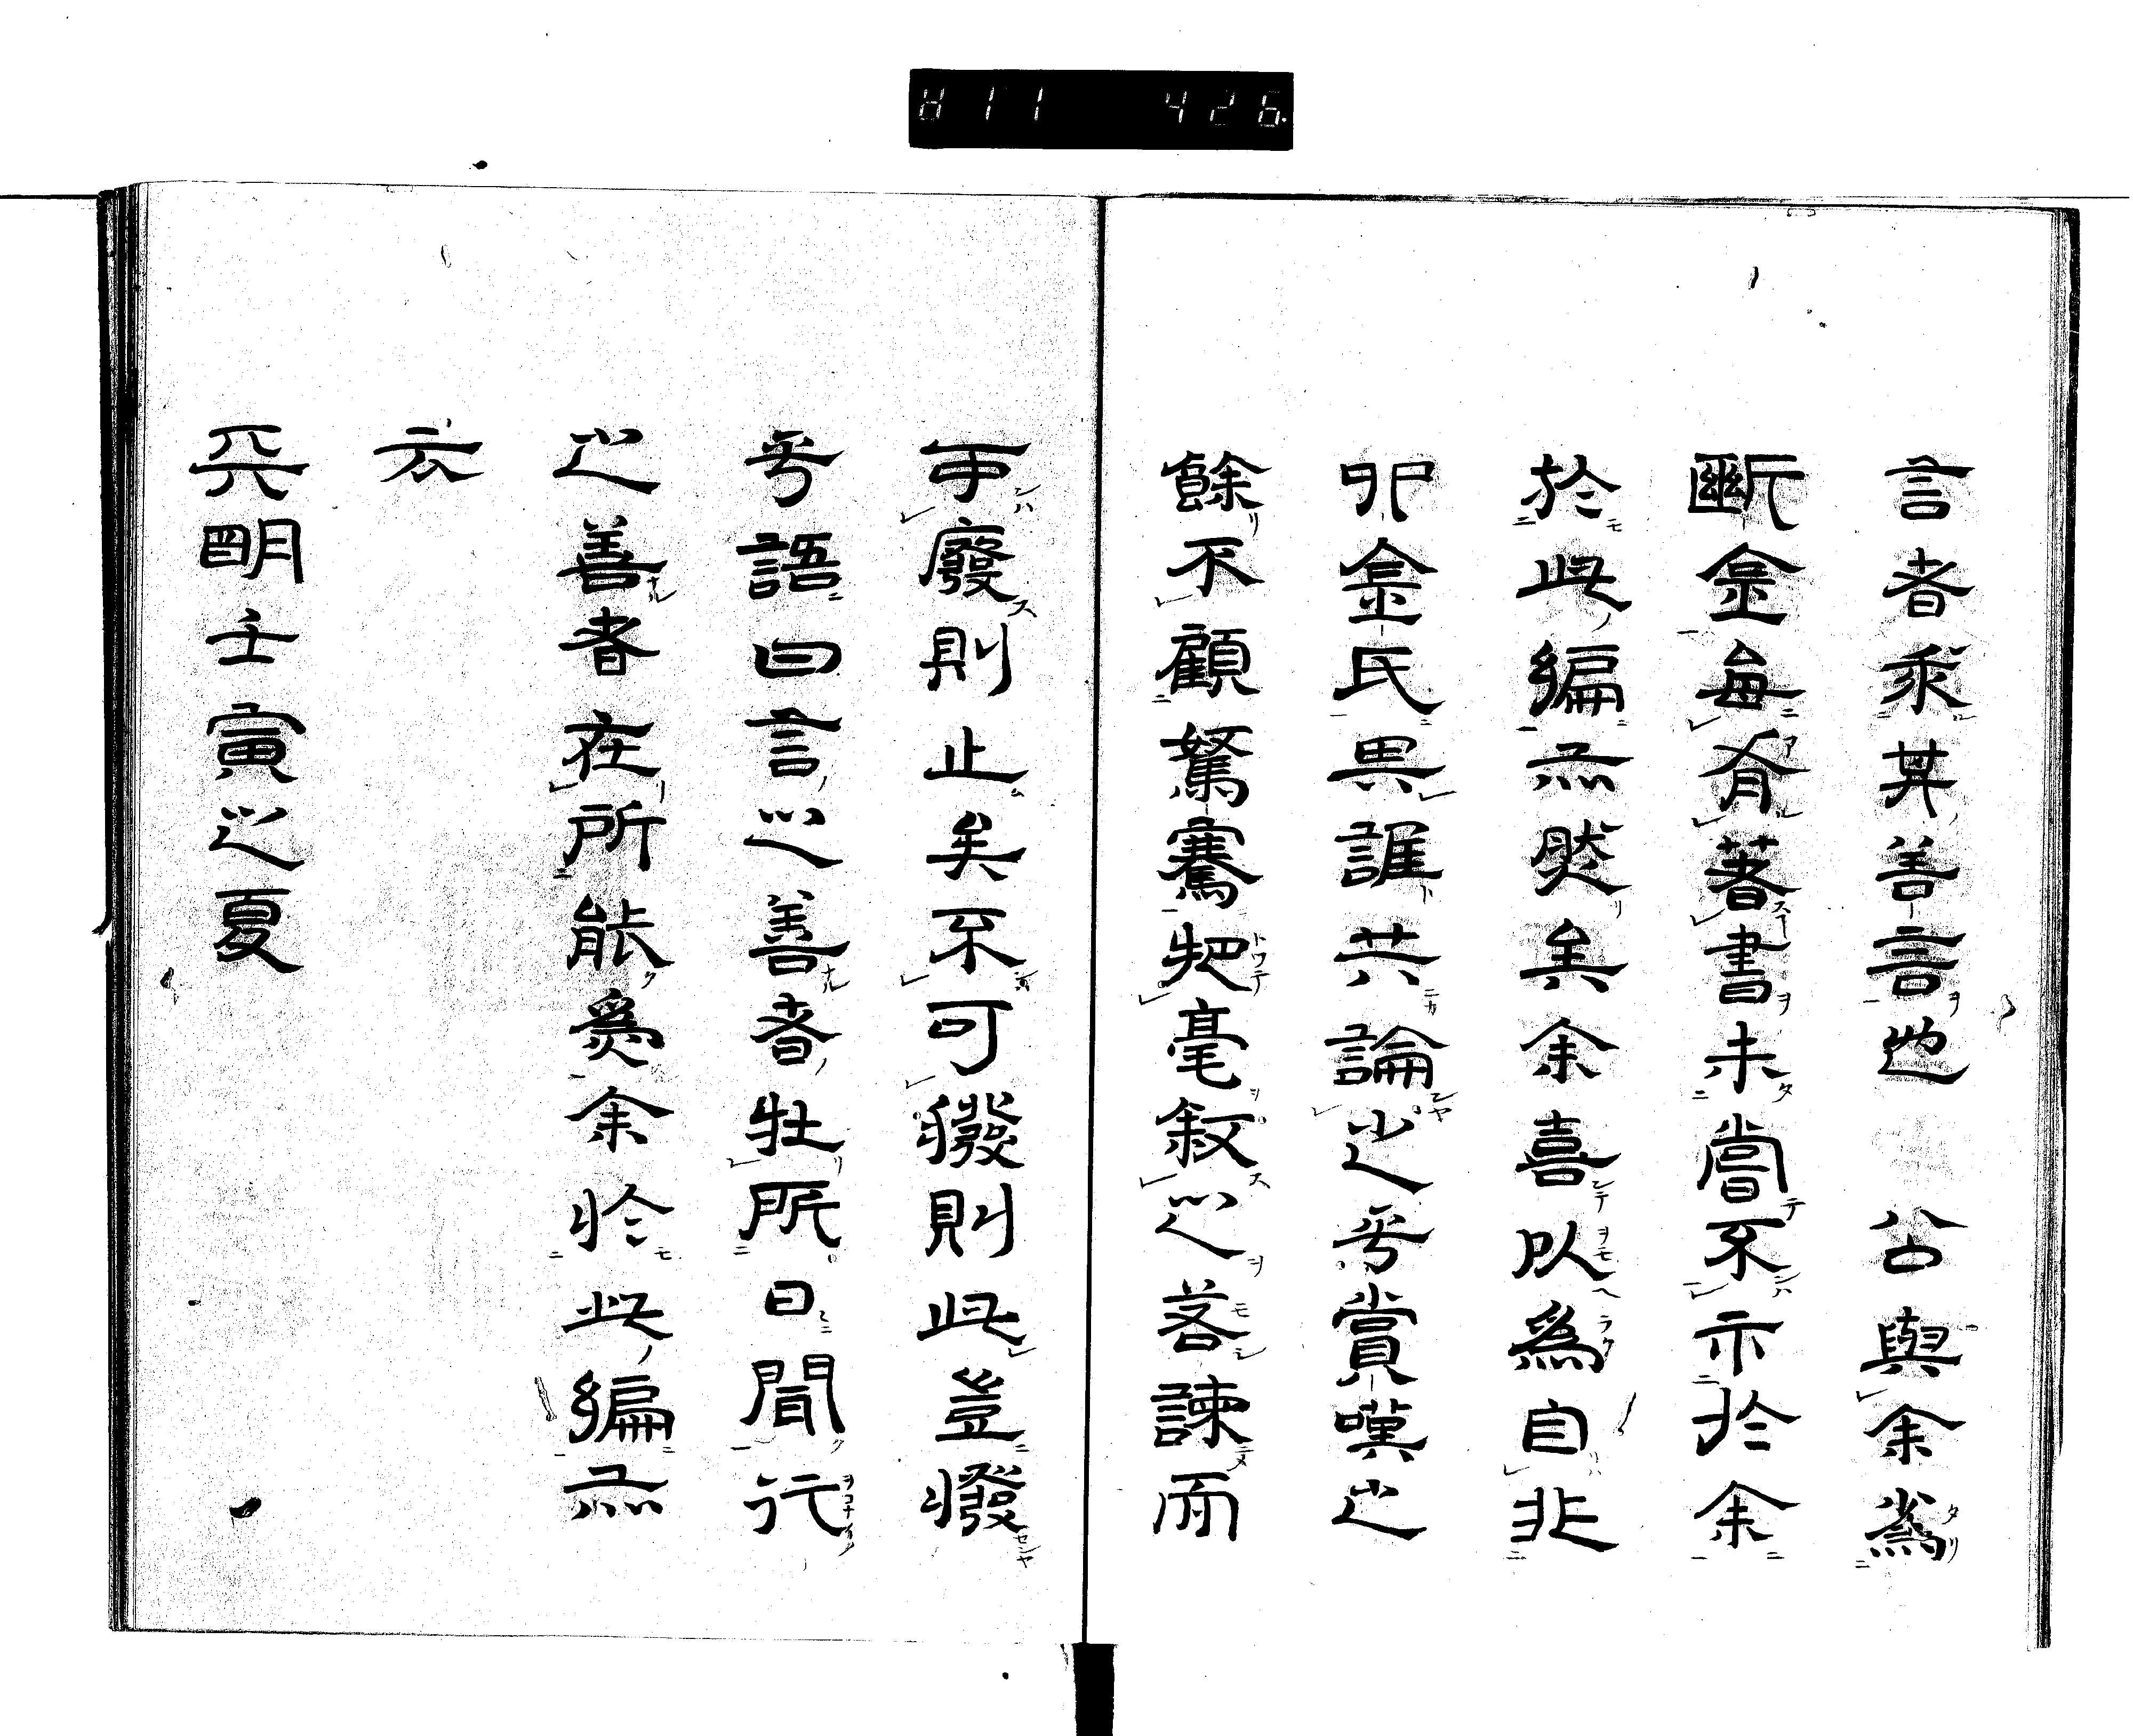 言者其善言也　公與余為
斷金每有著書未嘗不示於余
於此編亦然矣余喜以為自非
卯金氏誰共論之乎賞嘆之
餘不顧駑騫把毫敘之若諫而
可廢則止矣不可癈則此豈癈
乎語曰言之善者在所日聞行
之善者在所能為余於此編亦
云
天明壬寅之夏